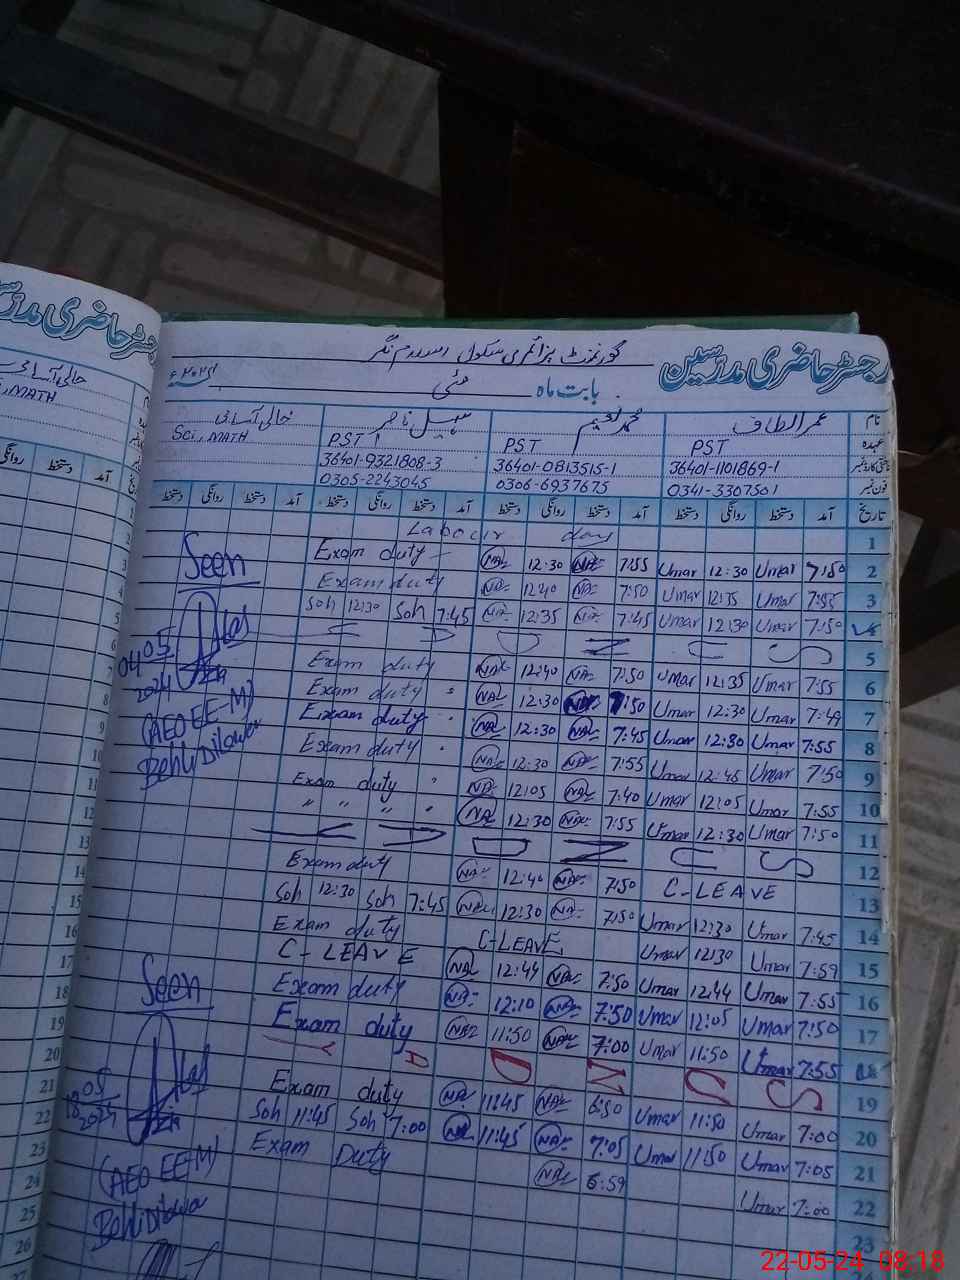 رجسٹر حاضری مدرسین
گورنمنٹ پرائمری سکول اسلام نگر
بابت ماہ مئی ۲۰۲۴ء
نام عمر الطاف محمد نعیم سہیل ناصر خالی آسامی
عہدہ PST PST PST Sci, MATH
شناختی کارڈ نمبر 36401-1101869-1 36401-0813515-1 36401-9321808-3
فون نمبر 0341-3307501 0306-6937675 0305-2243045
تاریخ آمد دستخط روانگی دستخط آمد دستخط روانگی دستخط آمد دستخط روانگی دستخط آمد دستخط روانگی دستخط
1 Labour day
2 7:50 Umar 12:30 Umar 7:55 12:30 Exam duty
3 7:55 Umar 12:35 Umar 7:50 12:40 Exam duty
4 7:50 Umar 12:30 Umar 7:45 12:35 7:45 Soh 12:30 Soh
5 S U N D A Y
6 7:55 Umar 12:35 Umar 7:50 12:40 Exam duty
7 7:49 Umar 12:30 Umar 7:50 12:30 Exam duty
8 7:55 Umar 12:30 Umar 7:45 12:30 Exam duty
9 7:50 Umar 12:45 Umar 7:55 12:30 Exam duty
10 7:55 Umar 12:05 Umar 7:40 12:05 Exam duty
11 7:50 Umar 12:30 Umar 7:55 12:30 " " "
12 S U N D A Y
13 C-LEAVE 7:50 12:40 Exam duty
14 7:45 Umar 12:30 Umar 7:50 12:30 7:45 Soh 12:30 Soh
15 7:59 Umar 12:30 Umar C-LEAVE Exam duty
16 7:55 Umar 12:44 Umar 7:50 12:44 C-LEAVE
17 7:50 Umar 12:05 Umar 7:50 12:10 Exam duty
18 7:55 Umar 11:50 Umar 7:00 11:50 Exam duty
19 S U N D A Y
20 7:00 Umar 11:50 Umar 6:50 11:45 Exam duty
21 7:05 Umar 11:50 Umar 7:05 11:45 7:00 Soh 11:45 Soh
22 7:00 Umar 6:59 Exam Duty
23
Seen
04 05
2024
(AEO EE-M)
Seen
18 05
2024
(AEO EE-M)
رجسٹر حاضری مدرسین
خالی آسامی
Sci, MATH
آمد دستخط روانگی
22-05-24 08:18